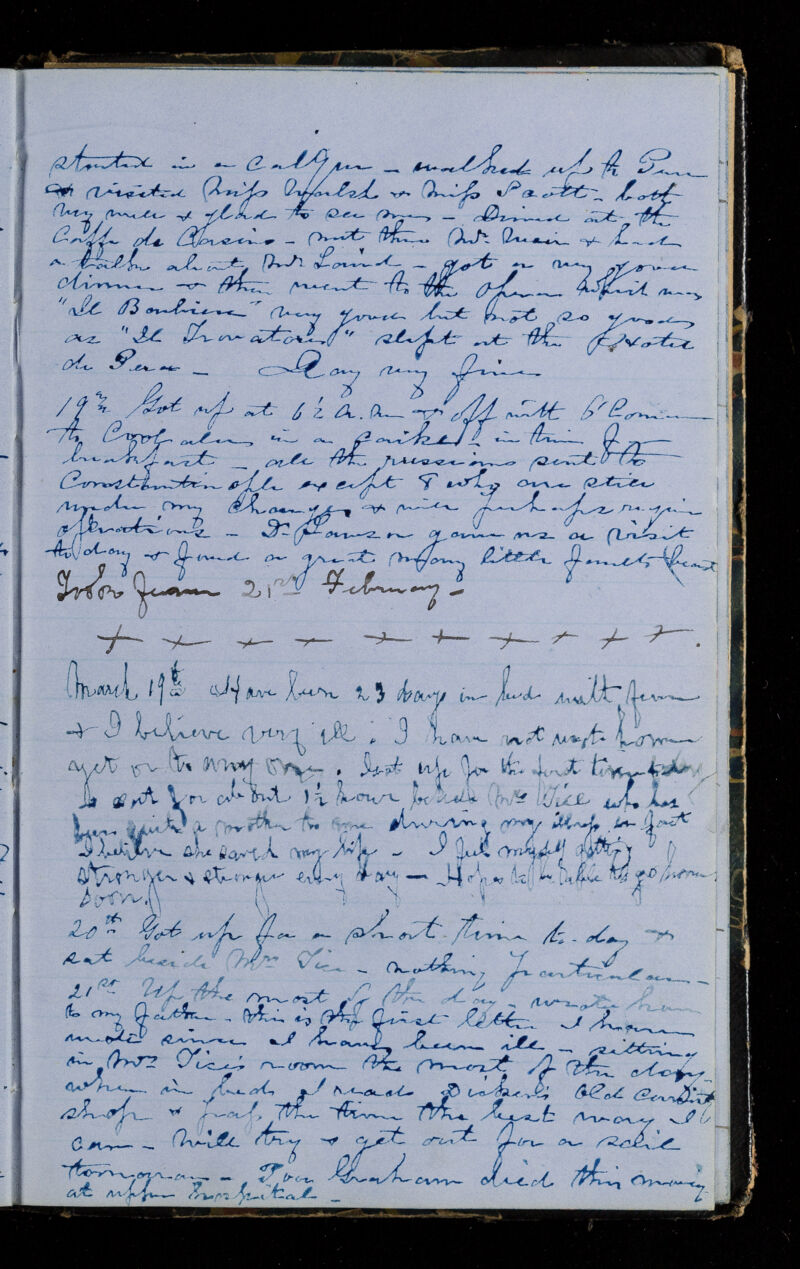 started in a Calque - walked up to Pera
& visited Miss Walsh & Miss Scott - both
very well & glad to see me - Dined at the
Caffe de Cassino - met there Mr. Muir & had
a talk about Mr - got a very good
dinner & then went to the Opera which was
"Il Barbiere" very good but not so good
as "Il Trovatore" slept at the Hotel
de Pera - Day very fine
19th Got up at 6½ A.M & off with
to in a Caike - in time for
breakfast - all the russians sent to
Constantinople except 8 who are still
under my charge & will perhaps require
operations - Dr Lawson gave us a visit
to day & found a great many little faults
Took fever 21st February -
+ + + + + + + + + + .
March 19th Have been 23 days in bed with fever
& I believe very ill. I have not wrote home
yet or to any one. Sat up for the first time to day
& sat for about 1½ hour beside Mrs Tice who has
been quite a mother to me during my illness in fact
I believe she saved my life - I feel myself getting
stronger & stronger every day - Hopes to be able to go home
soon.
20th Got up for a short time to-day &
sat beside Mrs Tice - nothing particular -
21st Up the most of the day - wrote home
to my father - this is the first letter I have
wrote since I have been ill - sitting
in Mrs Tice's room the most of the day -
when in bed I read Dickens Old Curiosity
shop & pass the time the best way I
can - Will try & get out for a sail
tomorrow - Poor Graham died this morning
at upper Hospital -